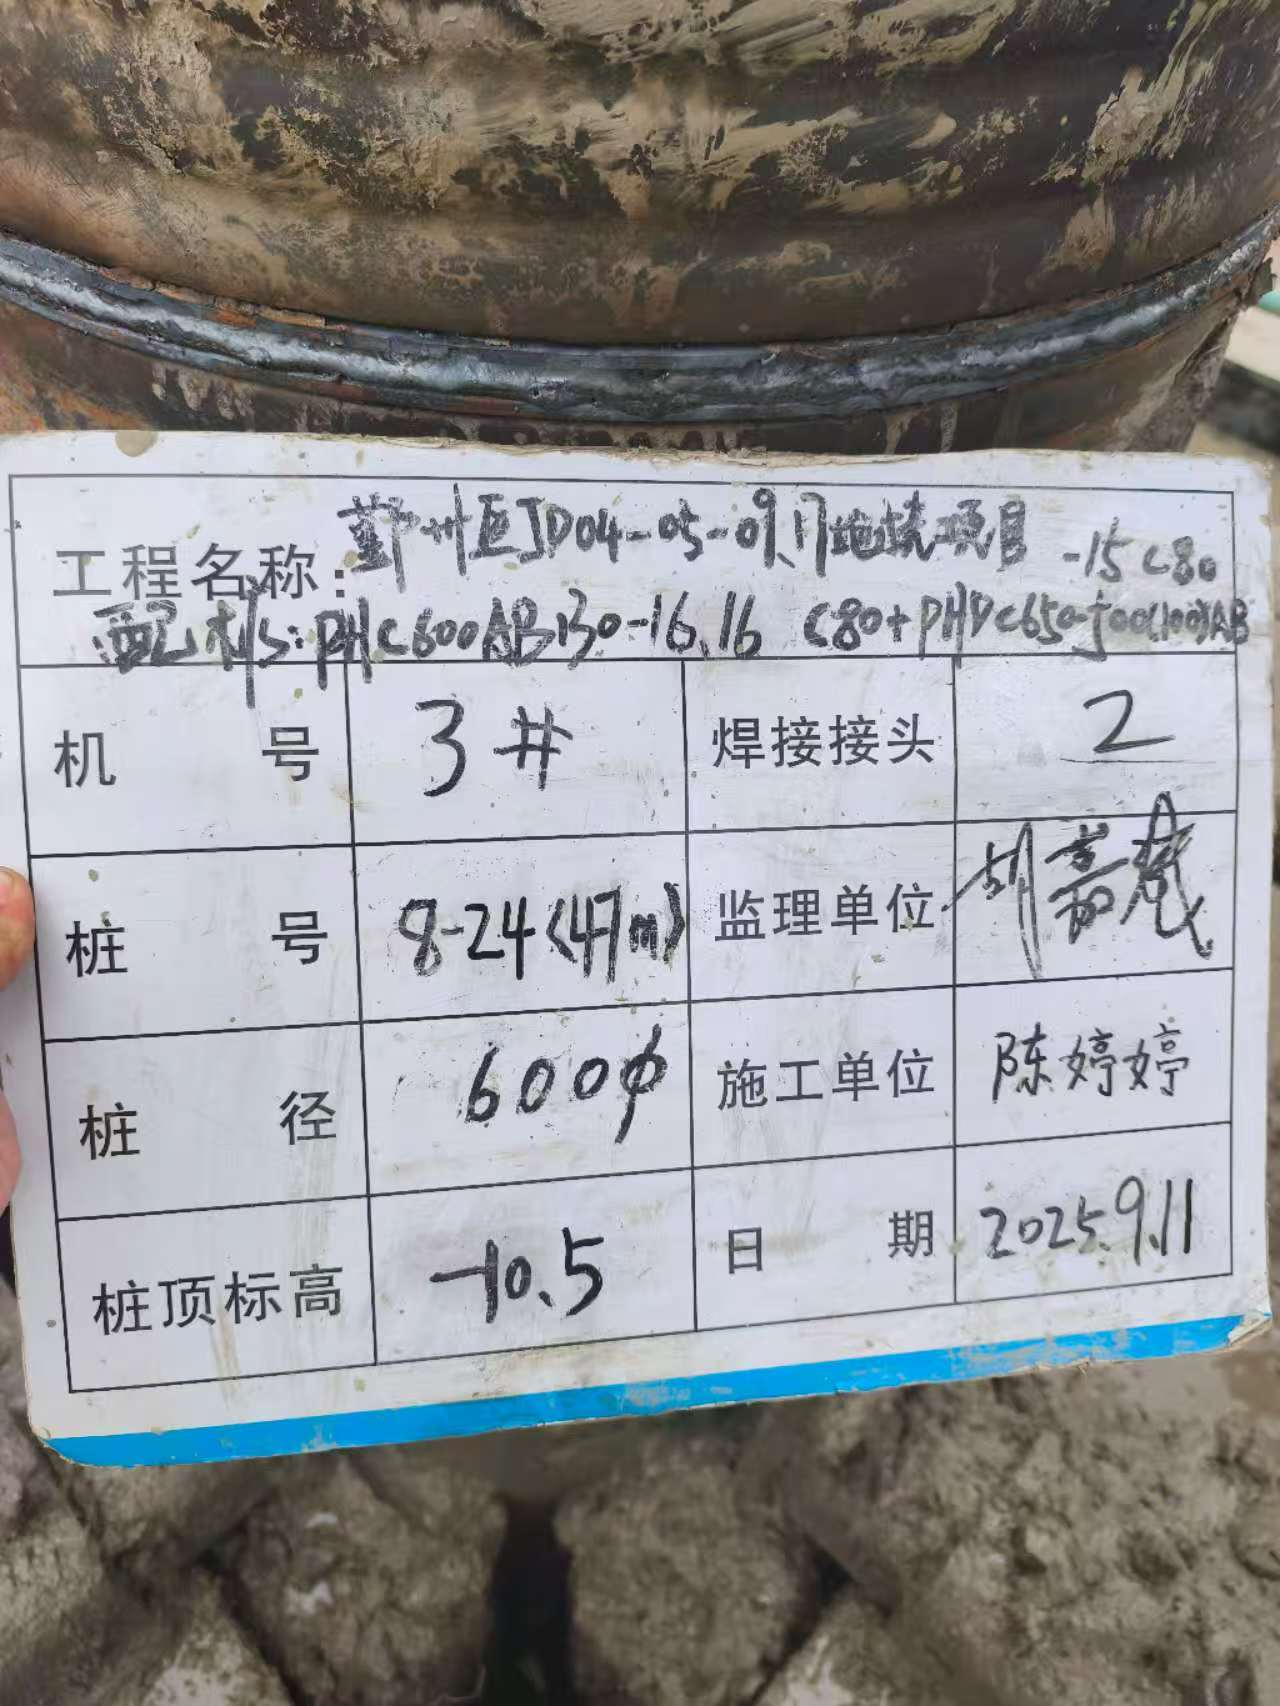 工程名称: 鄞州区JD04-05-09.17地块项目
-15 C80
配桩: PHC600AB130-16.16 C80+PHDC650-500(100)AB
机号 3# 焊接接头 2
桩号 8-24(47m) 监理单位 胡嘉
桩径 600φ 施工单位 陈婷婷
桩顶标高 -10.5 日期 2025.9.11